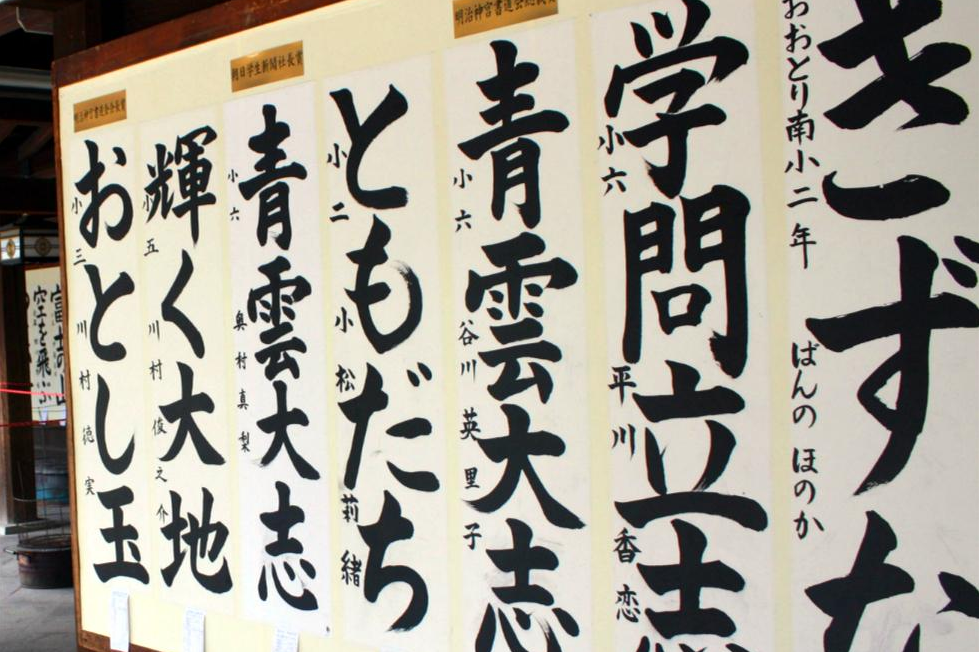 きずな
おおとり南小二年 ばんの ほのか
学問立志
小六 平川香恋
青雲大志
小六 谷川英里子
ともだち
小二 小松莉緒
朝日学生新聞社長賞
青雲大志
小六 奥村真梨
輝く大地
小五 川村俊之介
明治神宮書道会会長賞
おとし玉
小三 川村徳実
富士の山
空を飛ぶ